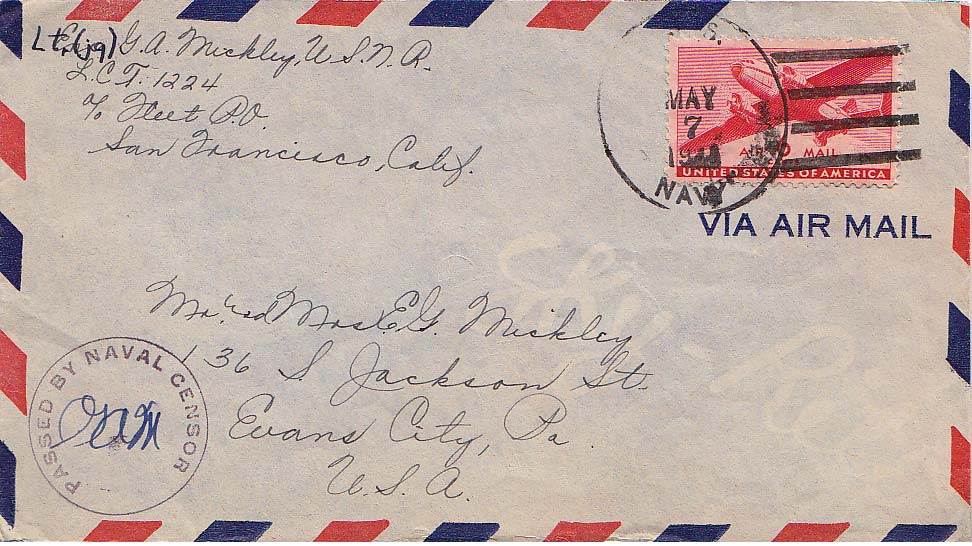 Lt.(jg) G.A. Mickley, U.S.N.R.
L.C.T. 1224
c/o Fleet P.O.
San Francisco, Calif.
U.S.
MAY
7
NAVY
AIR MAIL
UNITED STATES OF AMERICA
VIA AIR MAIL
Mr. and Mrs E.G. Mickley
136 S. Jackson St.
Evans City, Pa.
U.S.A.
PASSED BY NAVAL CENSOR
GAM